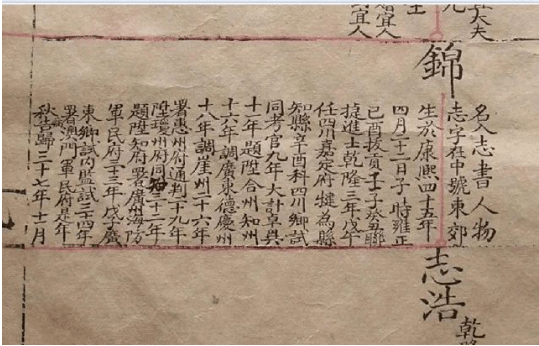 大夫
宜人
宜人
錦
名入志書人物
志字在中號東郊
生於康熙四十五年
四月二十二日子時雍正
己酉拔貢壬子癸丑聯
捷進士乾隆三年戊午
任四川嘉定府犍為縣
知縣辛酉科四川鄉試
同考官九年大計卓異
十一年題陞合州知州
十六年調廣東德慶州
十八年調崖州二十六年
署惠州府通判二十九年
陞瓊州府同知三十二年
題陞知府署廣州海防
軍民府三十三年戊子廣
東鄉試內監試三十四年
署澳門軍民府是年
秋告歸三十七年十一月
志浩
乾